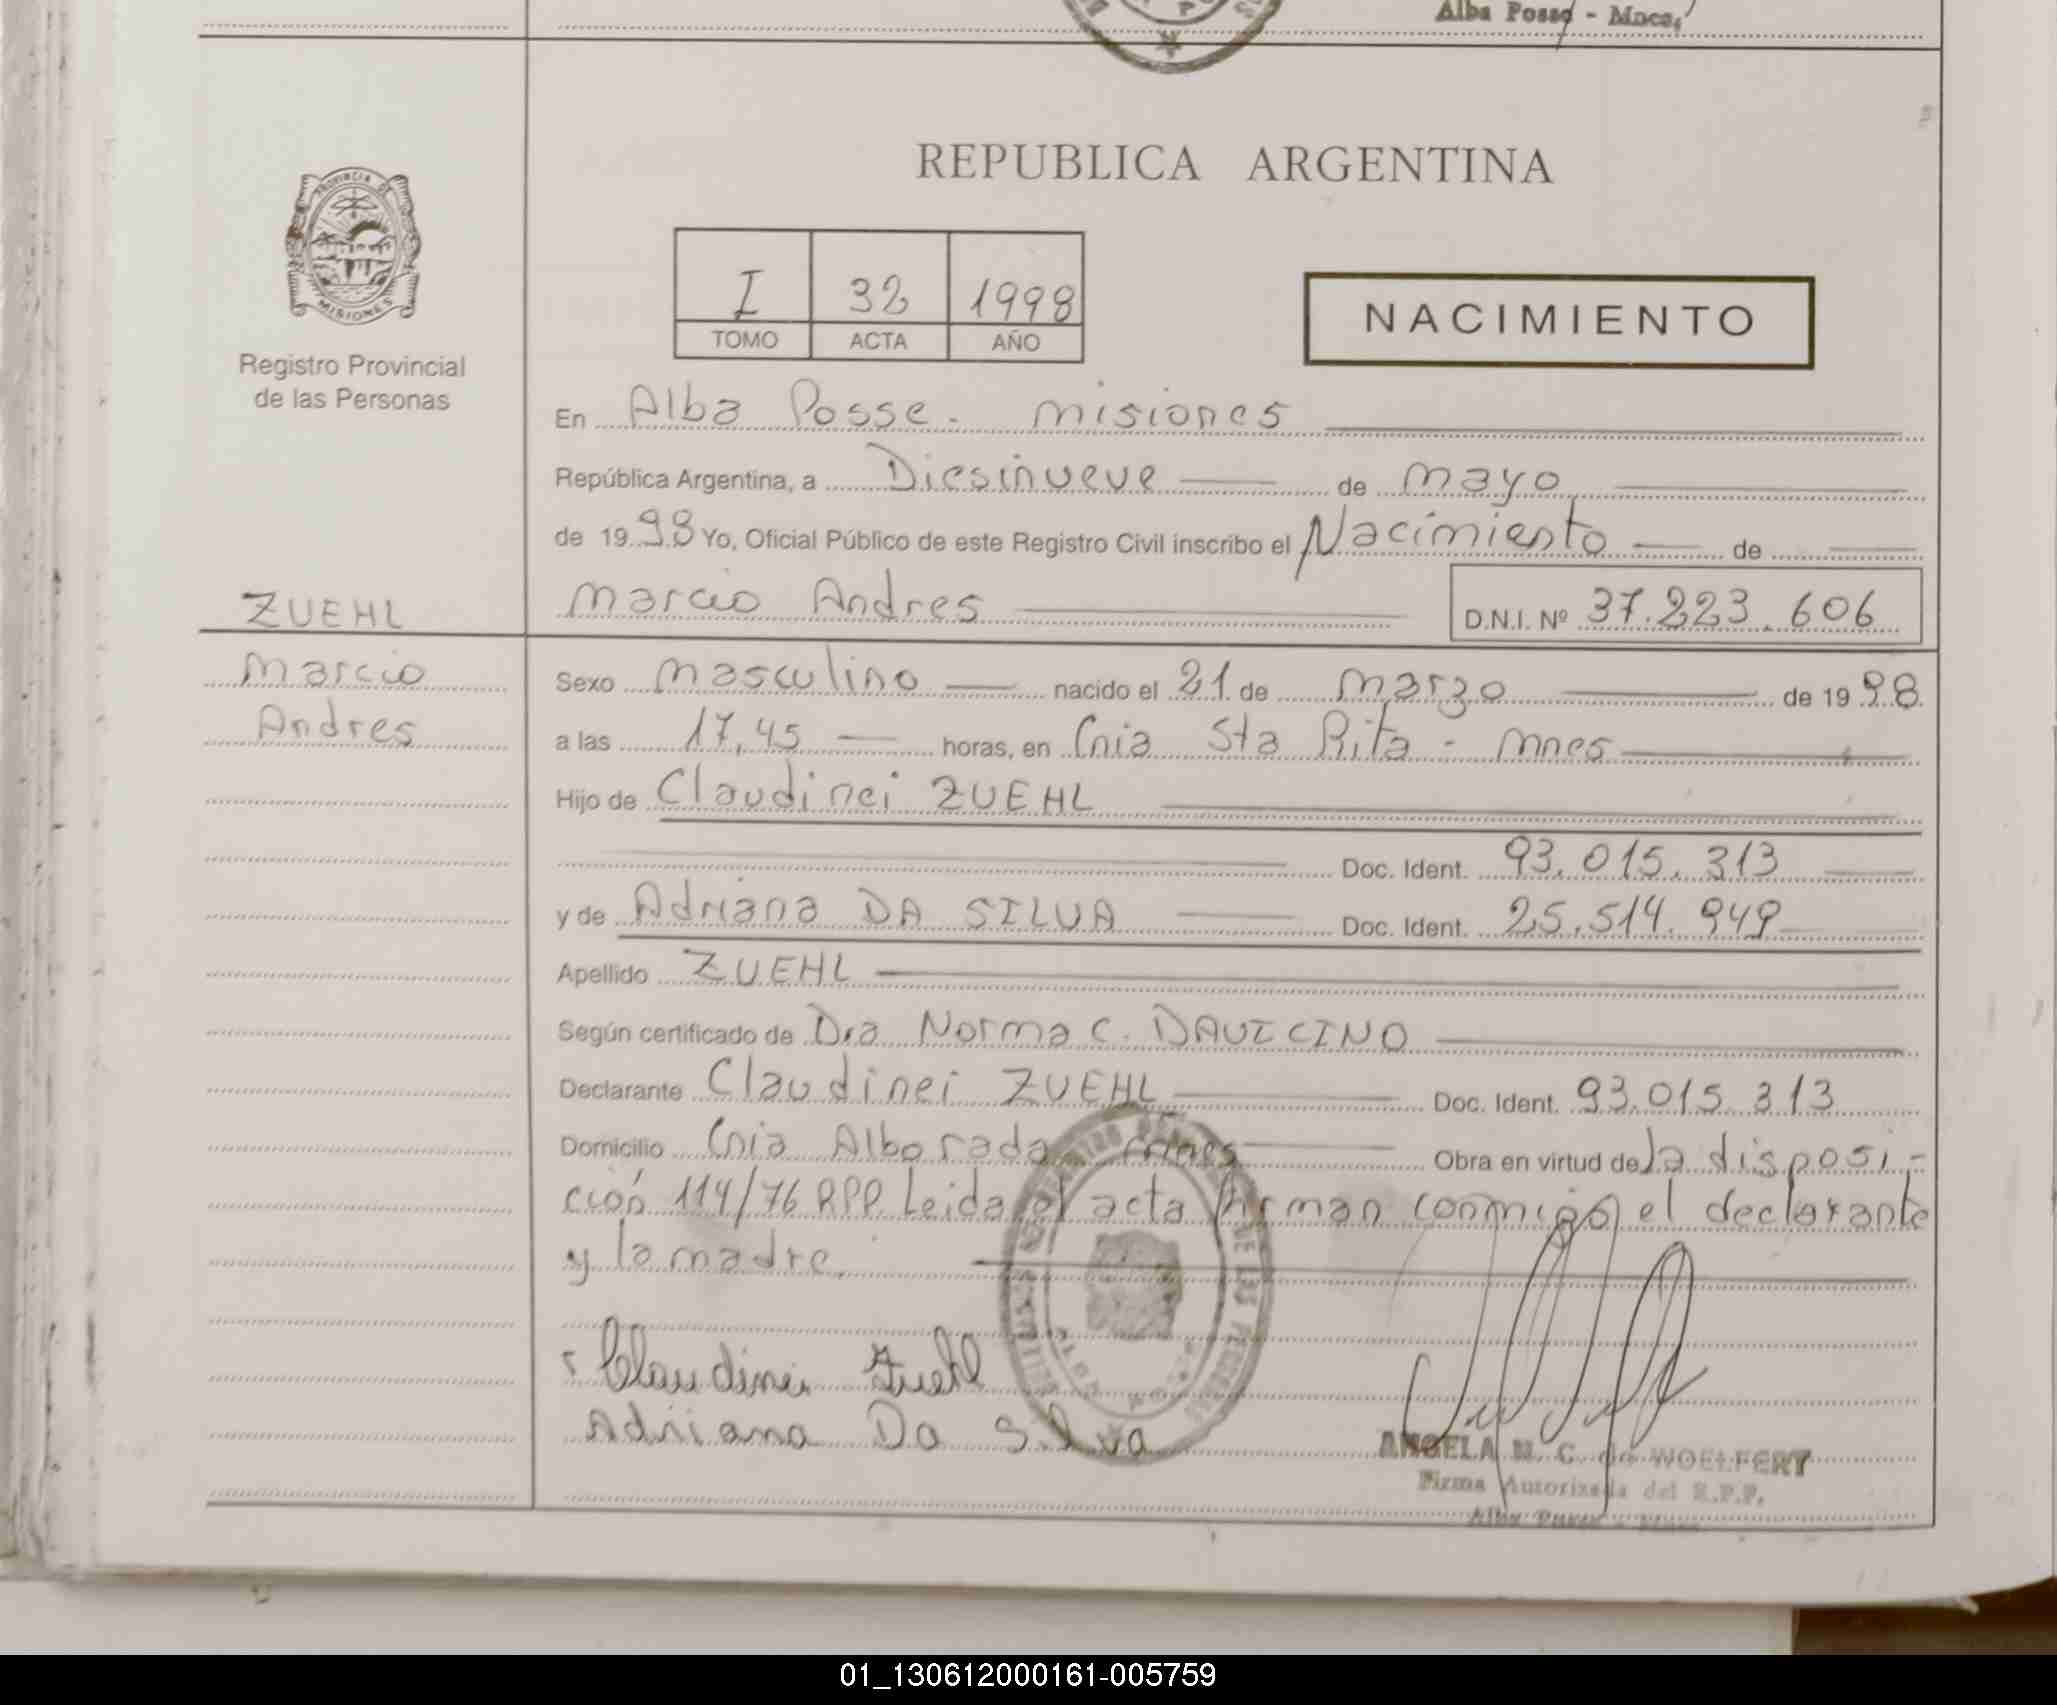 Alba Posse - Mnes.
REPUBLICA ARGENTINA
PROVINCIA DE
MISIONES
Registro Provincial
de las Personas
I 32 1998
TOMO ACTA AÑO
NACIMIENTO
En Alba Posse - Misiones
República Argentina, a Diesinueve de mayo
de 1998 Yo, Oficial Público de este Registro Civil inscribo el Nacimiento de
ZUEHL
Marcio Andres D.N.I. Nº 37.223.606
Marcio
Andres
Sexo masculino nacido el 21 de marzo de 1998
a las 17,45 horas, en Cnia Sta Rita - Mnes
Hijo de Claudinei ZUEHL
Doc. Ident. 93.015.313
y de Adriana DA SILVA Doc. Ident. 25.514.949
Apellido ZUEHL
Según certificado de Dra Norma C. DAVICINO
Declarante Claudinei ZUEHL Doc. Ident. 93.015.313
Domicilio Cnia Alborada Mnes Obra en virtud de la disposi-
ción 114/76 RPP. Leida el acta firman conmigo el declarante
y la madre.
Claudinei Zuehl
Adriana Da Silva
ANGELA N. C. de WOELFERT
Firma Autorizada del R.P.P.
Alba Posse - Mnes
01_130612000161-005759